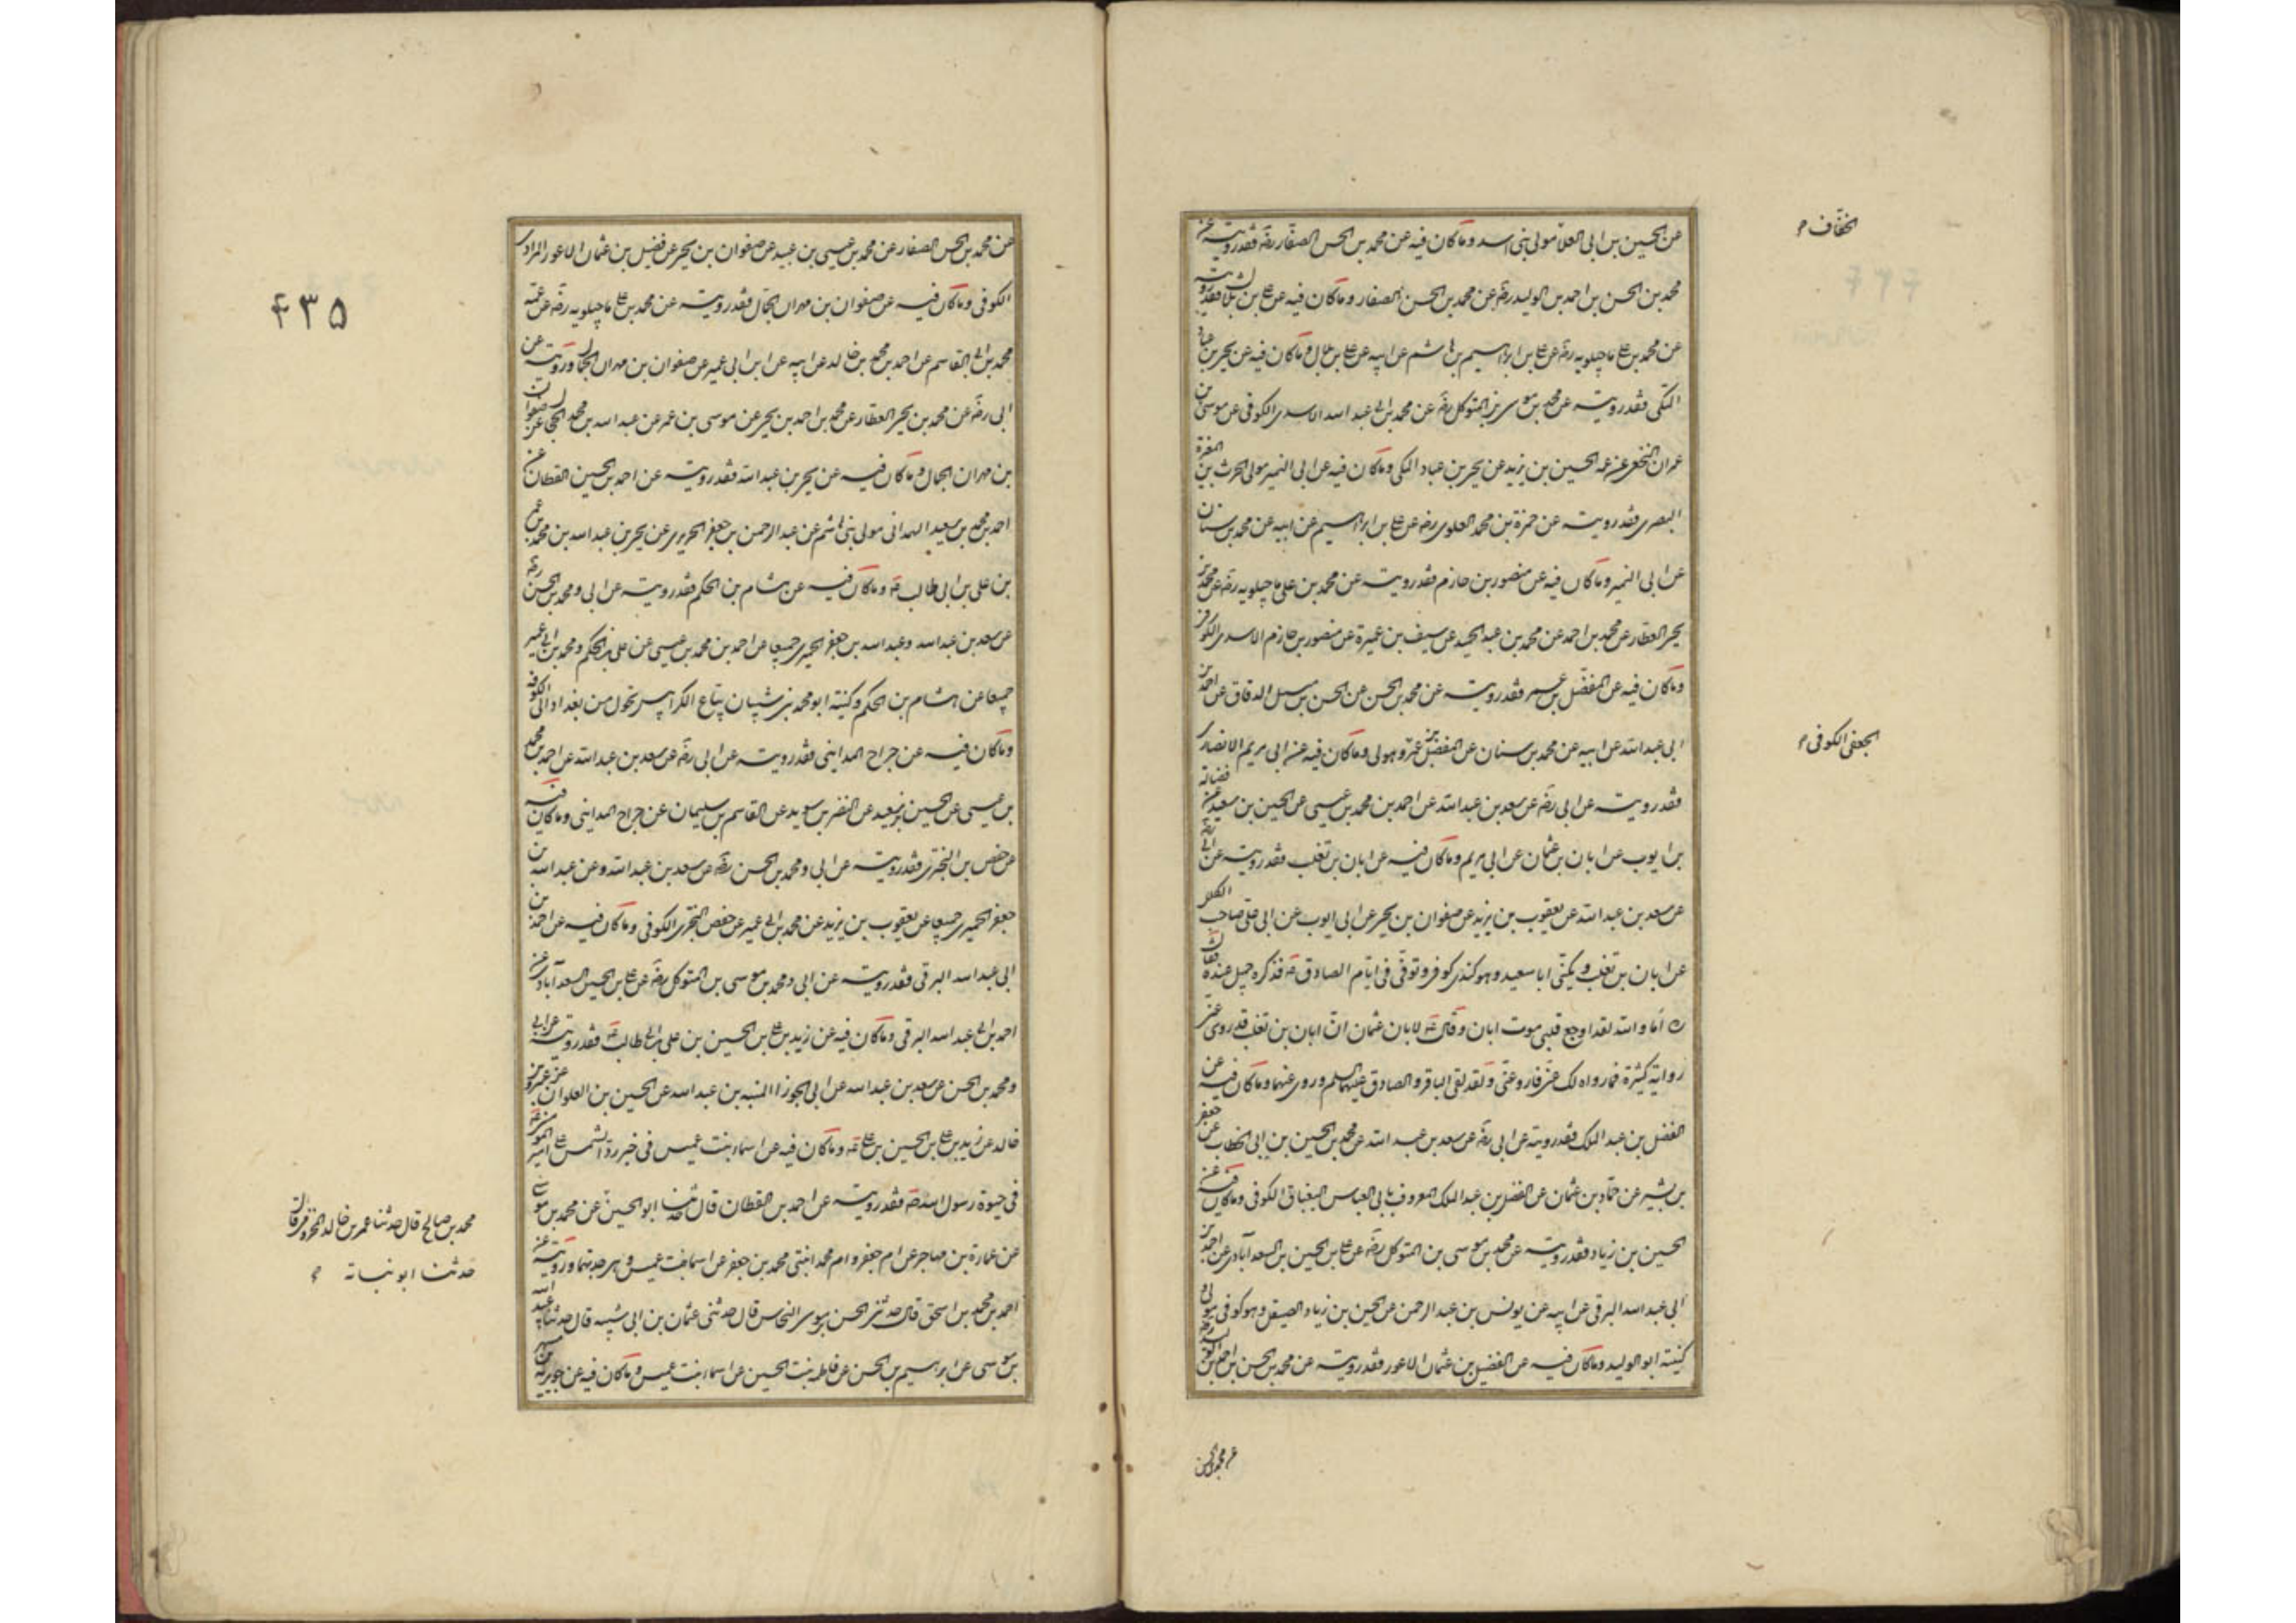 الخفّاف م
عن الحسين بن ابى العلاء مولى بنى اسد وما كان فيه عن محمد بن الحسن الصفار رضه فقد رويته عن
محمد بن الحسن بن احمد بن الوليد رضه عن محمد بن الحسن الصفار وما كان فيه عن على بن بلال فقد رويته
عن محمد بن على ماجيلويه رضه عن على بن ابراهيم بن هاشم عن ابيه عن على بن بلال وما كان فيه عن يحيى بن عباد
المكى فقد رويته عن محمد بن موسى بن المتوكل رضه عن محمد بن ابى عبد الله الاسدى الكوفى عن موسى بن
عمران النخعى عن عمه الحسين بن يزيد عن يحيى بن عباد المكى وما كان فيه عن ابى النمير مولى الحرث بن المغيرة
البصرى فقد رويته عن حمزة بن محمد العلوى رضه عن على بن ابراهيم عن ابيه عن محمد بن سنان
عن ابى النمير وما كان فيه عن منصور بن حازم فقد رويته عن محمد بن على ماجيلويه رضه عن محمد بن
يحيى العطار عن محمد بن احمد عن محمد بن عبد الحميد عن سيف بن عميرة عن منصور بن حازم الاسدى الكوفى
وما كان فيه عن المفضل بن عمر فقد رويته عن محمد بن الحسن عن الحسن بن متيل الدقاق عن احمد بن
ابى عبد الله عن ابيه عن محمد بن سنان عن المفضل بن عمر وهو مولى وما كان فيه عن ابى مريم الانصارى
الجعفى الكوفى م
فقد رويته عن ابى رضه عن سعد بن عبد الله عن احمد بن محمد بن عيسى عن الحسين بن سعيد عن فضالة
بن ايوب عن ابان بن عثمان عن ابى مريم وما كان فيه عن ابان بن تغلب فقد رويته عن ابى رضه
عن سعد بن عبد الله عن يعقوب بن يزيد عن صفوان بن يحيى عن ابى ايوب عن ابى على صاحب الكلل
عن ابان بن تغلب ويكنّى ابا سعيد وهو كندى كوفى وتوفّى فى ايّام الصادق عه فذكره جميل عنده فقال
ره أما والله لقد اوجع قلبى موت ابان وقال عه لابان عثمان انّ ابان بن تغلب قد روى عنى
رواية كثيرة فما رواه لك عنّى فاروه عنّى ولقد لقى الباقر والصادق عليهما السلم وروى عنهما وما كان فيه عن
الفضل بن عبد الملك فقد رويته عن ابى رضه عن سعد بن عبد الله عن محمد بن الحسين بن ابى الخطاب عن جعفر
بن بشير عن حمّاد بن عثمان عن الفضل بن عبد الملك المعروف بابى العباس البقباق الكوفى وما كان فيه عن
الحسين بن زياد فقد رويته عن محمد بن موسى بن المتوكل رضه عن على بن الحسين السعدآبادى عن احمد بن
ابى عبد الله البرقى عن ابيه عن يونس بن عبد الرحمن عن الحسين بن زياد الصيقل وهو كوفى مولى
كنيته ابو الوليد وما كان فيه عن الفضيل بن عثمان الاعور فقد رويته عن محمد بن الحسن بن احمد بن الوليد رضه
عن محمد بن الحسن
٤٣٥
عن محمد بن الحسن الصفار عن محمد بن عيسى بن عبيد عن صفوان بن يحيى عن فضيل بن عثمان الاعور المرادى
الكوفى وما كان فيه عن صفوان بن مهران الجمال فقد رويته عن محمد بن على ماجيلويه رضه عن عمه
محمد بن ابى القاسم عن احمد بن محمد بن خالد عن ابيه عن ابن ابى عمير عن صفوان بن مهران الجمال ورويته عن
ابى رضه عن محمد بن يحيى العطار عن محمد بن احمد بن يحيى عن موسى بن عمر عن عبد الله بن محمد الحجال عن صفوان
بن مهران الجمال وما كان فيه عن يحيى بن عبد الله فقد رويته عن احمد بن الحسين القطان عن
احمد بن محمد بن سعيد الهمدانى مولى بنى هاشم عن عبد الرحمن بن جعفر الحريرى عن يحيى بن عبد الله بن محمد بن عمر
بن على بن ابى طالب عه وما كان فيه عن هشام بن الحكم فقد رويته عن ابى ومحمد بن الحسن رضه
عن سعد بن عبد الله وعبد الله بن جعفر الحميرى جميعا عن احمد بن محمد بن عيسى عن على بن الحكم ومحمد بن ابى عمير
جميعا عن هشام بن الحكم وكنيته ابو محمد بن شيبان بيّاع الكرابيس تحول من بغداد الى الكوفه
وما كان فيه عن جراح المداينى فقد رويته عن ابى رضه عن سعد بن عبد الله عن احمد بن محمد
بن عيسى عن الحسين بن سعيد عن النضر بن سويد عن القاسم بن سليمان عن جراح المداينى وما كان فيه
عن حفص بن البخترى فقد رويته عن ابى ومحمد بن الحسن رضه عن سعد بن عبد الله وعن عبد الله بن
جعفر الحميرى جميعا عن يعقوب بن يزيد عن محمد بن ابى عمير عن حفص البخترى الكوفى وما كان فيه عن احمد بن
ابى عبد الله البرقى فقد رويته عن ابى ومحمد بن موسى بن المتوكل رضه عن على بن الحسين السعدآبادى عن
احمد بن ابى عبد الله البرقى وما كان فيه عن زيد بن على بن الحسين بن على بن ابى طالب عه فقد رويته عن ابى
ومحمد بن الحسن عن سعد بن عبد الله عن ابى الجوزا المنبه بن عبد الله عن الحسين بن العلوان عن عمرو بن
خالد عن زيد بن على بن الحسين بن على عه وما كان فيه عن اسماء بنت عميس فى خبر ردّ الشمس على امير المومنين عه
فى حيوة رسول الله صه فقد رويته عن احمد بن القطان قال حدثنا ابو الحسين عن محمد بن موسى
عن عمارة بن مهاجر عن ام جعفر وام محمد ابنتى محمد بن جعفر عن اسما بنت عميس وهى جدتهما ورويته عن
احمد بن محمد بن اسحق قال حدثنى الحسن بن موسى النخاس قال حدثنى عثمان بن ابى شيبه قال حدثنا عبد الله
بن موسى عن ابرهيم بن الحسن عن فاطمه بنت الحسين عن اسماء بنت عميس وما كان فيه عن جويريه بن مسهر
محمد بن صالح قال حدثنا عمر بن خالد المخزومى قال
حدثنا ابو نباته م